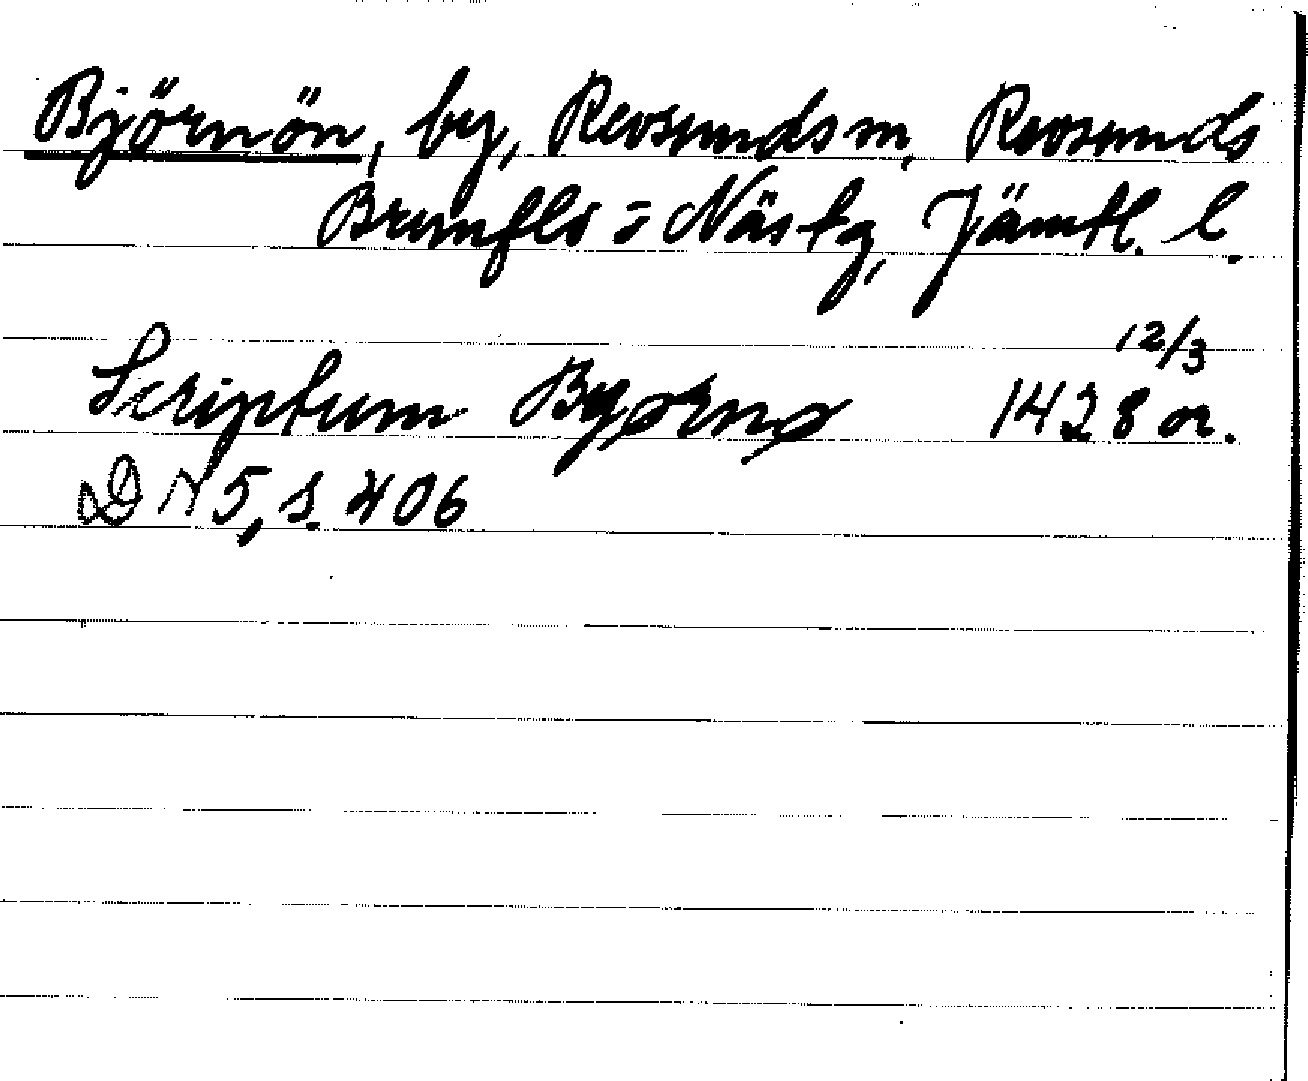 Björnön, by, Revsunds sn, Revsunds
Brunflo = Näs tg, Jämtl. l.
12/3
Scriptum Byørnø 1428 or.
DN 5, s. 406